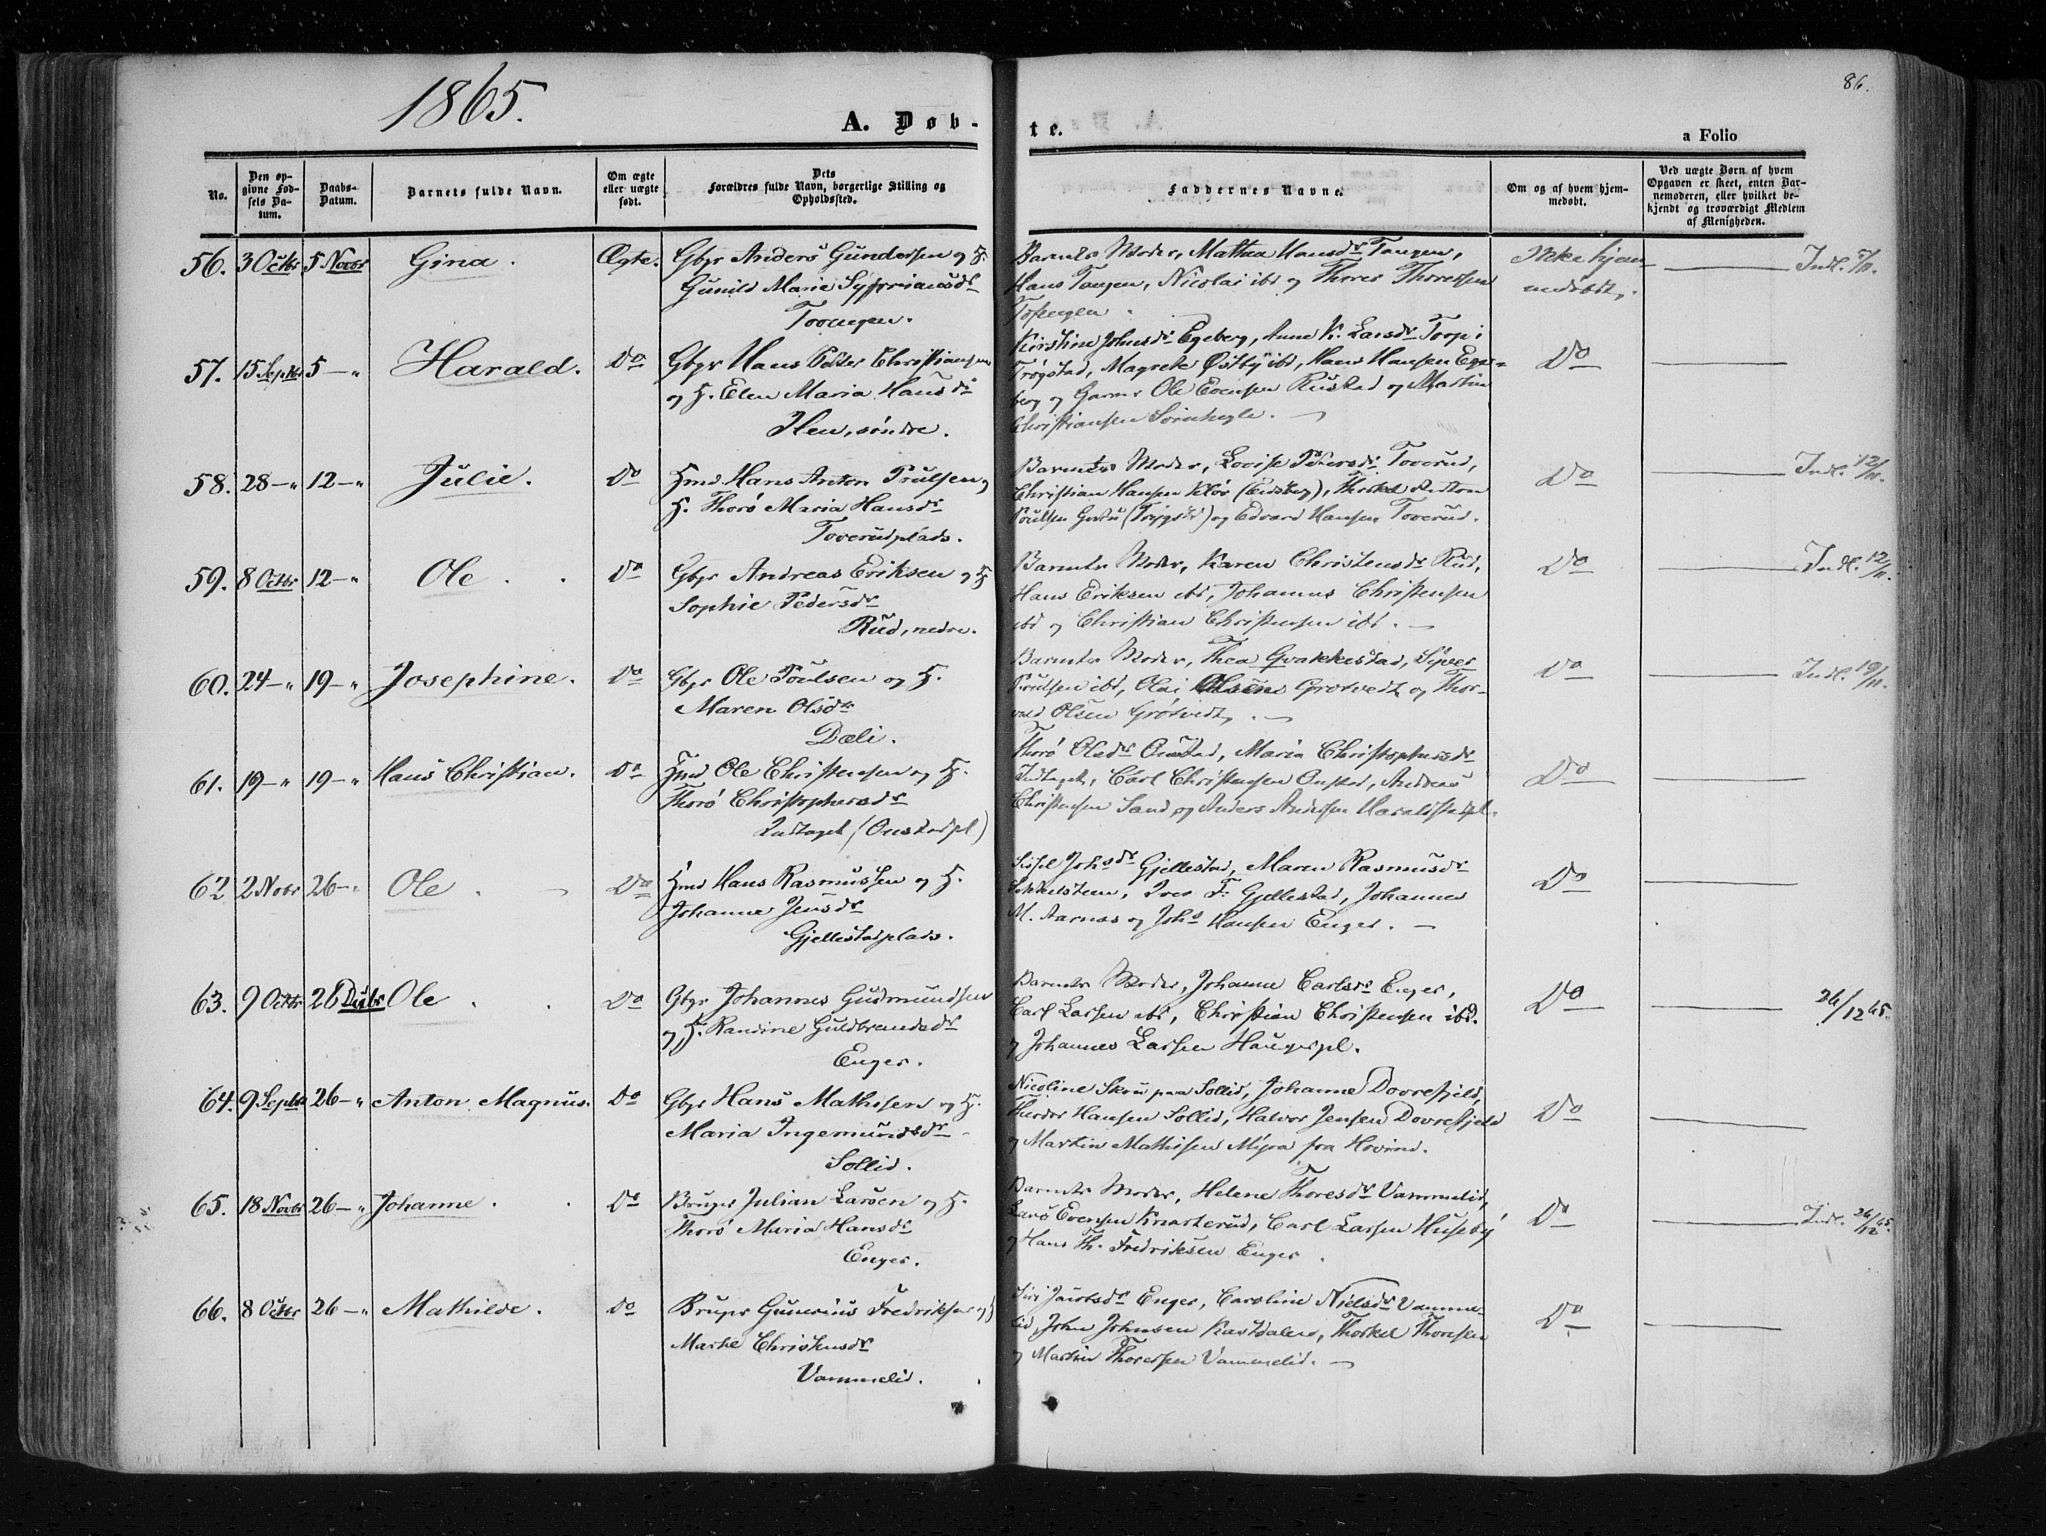 1865.
86.
A. Døb-
te.
a Folio
No.
Den op-
givne Fød-
sels Da-
tum.
Daabs-
Datum.
Barnets fulde Navn.
Om ægte
eller uægte
født.
Dets
Forældres fulde Navn, borgerlige Stilling og
Opholdssted.
Faddernes Navne.
Om og af hvem hjem-
medøbt.
Ved uægte Børn af hvem
Opgaven er skeet, enten Bar-
nemoderen, eller hvilket be-
kjendt og troværdigt Medlem
af Menigheden.
56. 3 Octbr 5 Novbr Gina. Ægte. Gbgr Anders Gundersen og H.
Gunild Maria
Toverud.
Barnets Moder, Mathea Hansdr Tangen,
Hans Tangen, Nicolai ibd og Thores Thoresen
Ikke hjem-
medøbt.
Indl. 5/11.
57. 15 Septbr 5 – " Harald. Do Gbgr Hans Peter Christiansen
og H. Elen Maria Hansdr
Hen, søndre.
Kirstine Johnsdr Egeberg, Anne K. Larsdr Torp i
Trøgstad, Magrete Østby ibd, Hans Hansen Ege-
berg og Garver Ole Evensen Rustad og Martin
Christiansen
Do
58. 28 – " 12 – " Julie. Do Hmd Hans Anton Poulsen og
H. Thorø Maria Hansdr
Toverudplads.
Barnets Moder, Lovise Petersdr Toverud,
Christian Hansen (Eidsberg), Thorkel Anton
Poulsen og Edvard Hansen Toverud.
Do
Indl. 12/11.
59. 8 Octbr 12 – " Ole. Do Gbgr Andreas Eriksen og H
Sophie Pedersdr
Rud, nedre.
Barnets Moder, Karen Christensdr Rud,
Hans Eriksen ibd, Johannes Christensen
ibd og Christian Christensen ibd. –
Do
Indl. 12/11.
60. 24 – " 19 – " Josephine. Do Gbgr Ole Poulsen og H.
Maren Olsdr
Dæli.
Barnets Moder, Thea Qvakkestad, Syver
Poulsen ibd, Olai Olsen Grøtvedt og Thor-
vald Olsen Grøtvedt. –
Do
Indl. 19/11.
61. 19 – " 19 – " Hans Christian. Do Hmd Ole Christensen og H.
Thorø Christophersdr
Indtaget (Onstadpl)
Thorø Olsdr Onstad, Maria Christophersdr
Indtaget, Carl Christensen Onstad, Anders
Christensen Sand og Anders Andersen Haraldstadpl.
Do
62 2 Novbr 26 – " Ole. Do Hmd Hans Rasmussen og H.
Johanne Jensdr
Gjellestadplads.
Sissel Johsdr Gjellestad, Maren Rasmusdr
Iver F. Gjellestad, Johannes
M. Aarnæs og Johs Hansen Enger. –
Do
63. 9 Octbr 26 Decbr Ole. Do Gbgr Johannes Gudmundsen
og H. Randine Guldbrandsdr
Enger.
Barnets Moder, Johanne Carlsdr Enger,
Carl Larsen ibd, Christian Christensen ibd.
og Johannes Larsen Haugerpl.
Do
26/12 65.
64. 9 Septbr 26 – " Anton Magnus. Do Gbgr Hans Mathisen og H.
Maria Ingemundsdr
Sollid.
Nicoline Skou paa Sollid, Johanne Dovrefjeld,
Theodor Hansen Sollid, Halvor Jensen Dovrefjeld
og Martin Mathisen Myra fra Hovind.
Do
65. 18 Novbr 26 – " Johanne. Do Bruger Julian Larsen og H.
Thorø Maria Hansdr
Enger.
Barnets Moder, Helene Thoresdr Vammelid,
Lars Evensen Knatterud, Carl Larsen Huseby
og Hans Th. Fredriksen Enger.
Do
Indl. 26/12 65.
66. 8 Octbr 26 – " Mathilde. Do Bruger Gunerius Fredriksen og H
Marte Christensdr
Vammelid.
Siri Jacobsdr Enger, Caroline Nielsdr Vamme-
lid, John Johnsen Kastdalen, Thorkel Thoresen
og Martin Thoresen Vammelid. –
Do